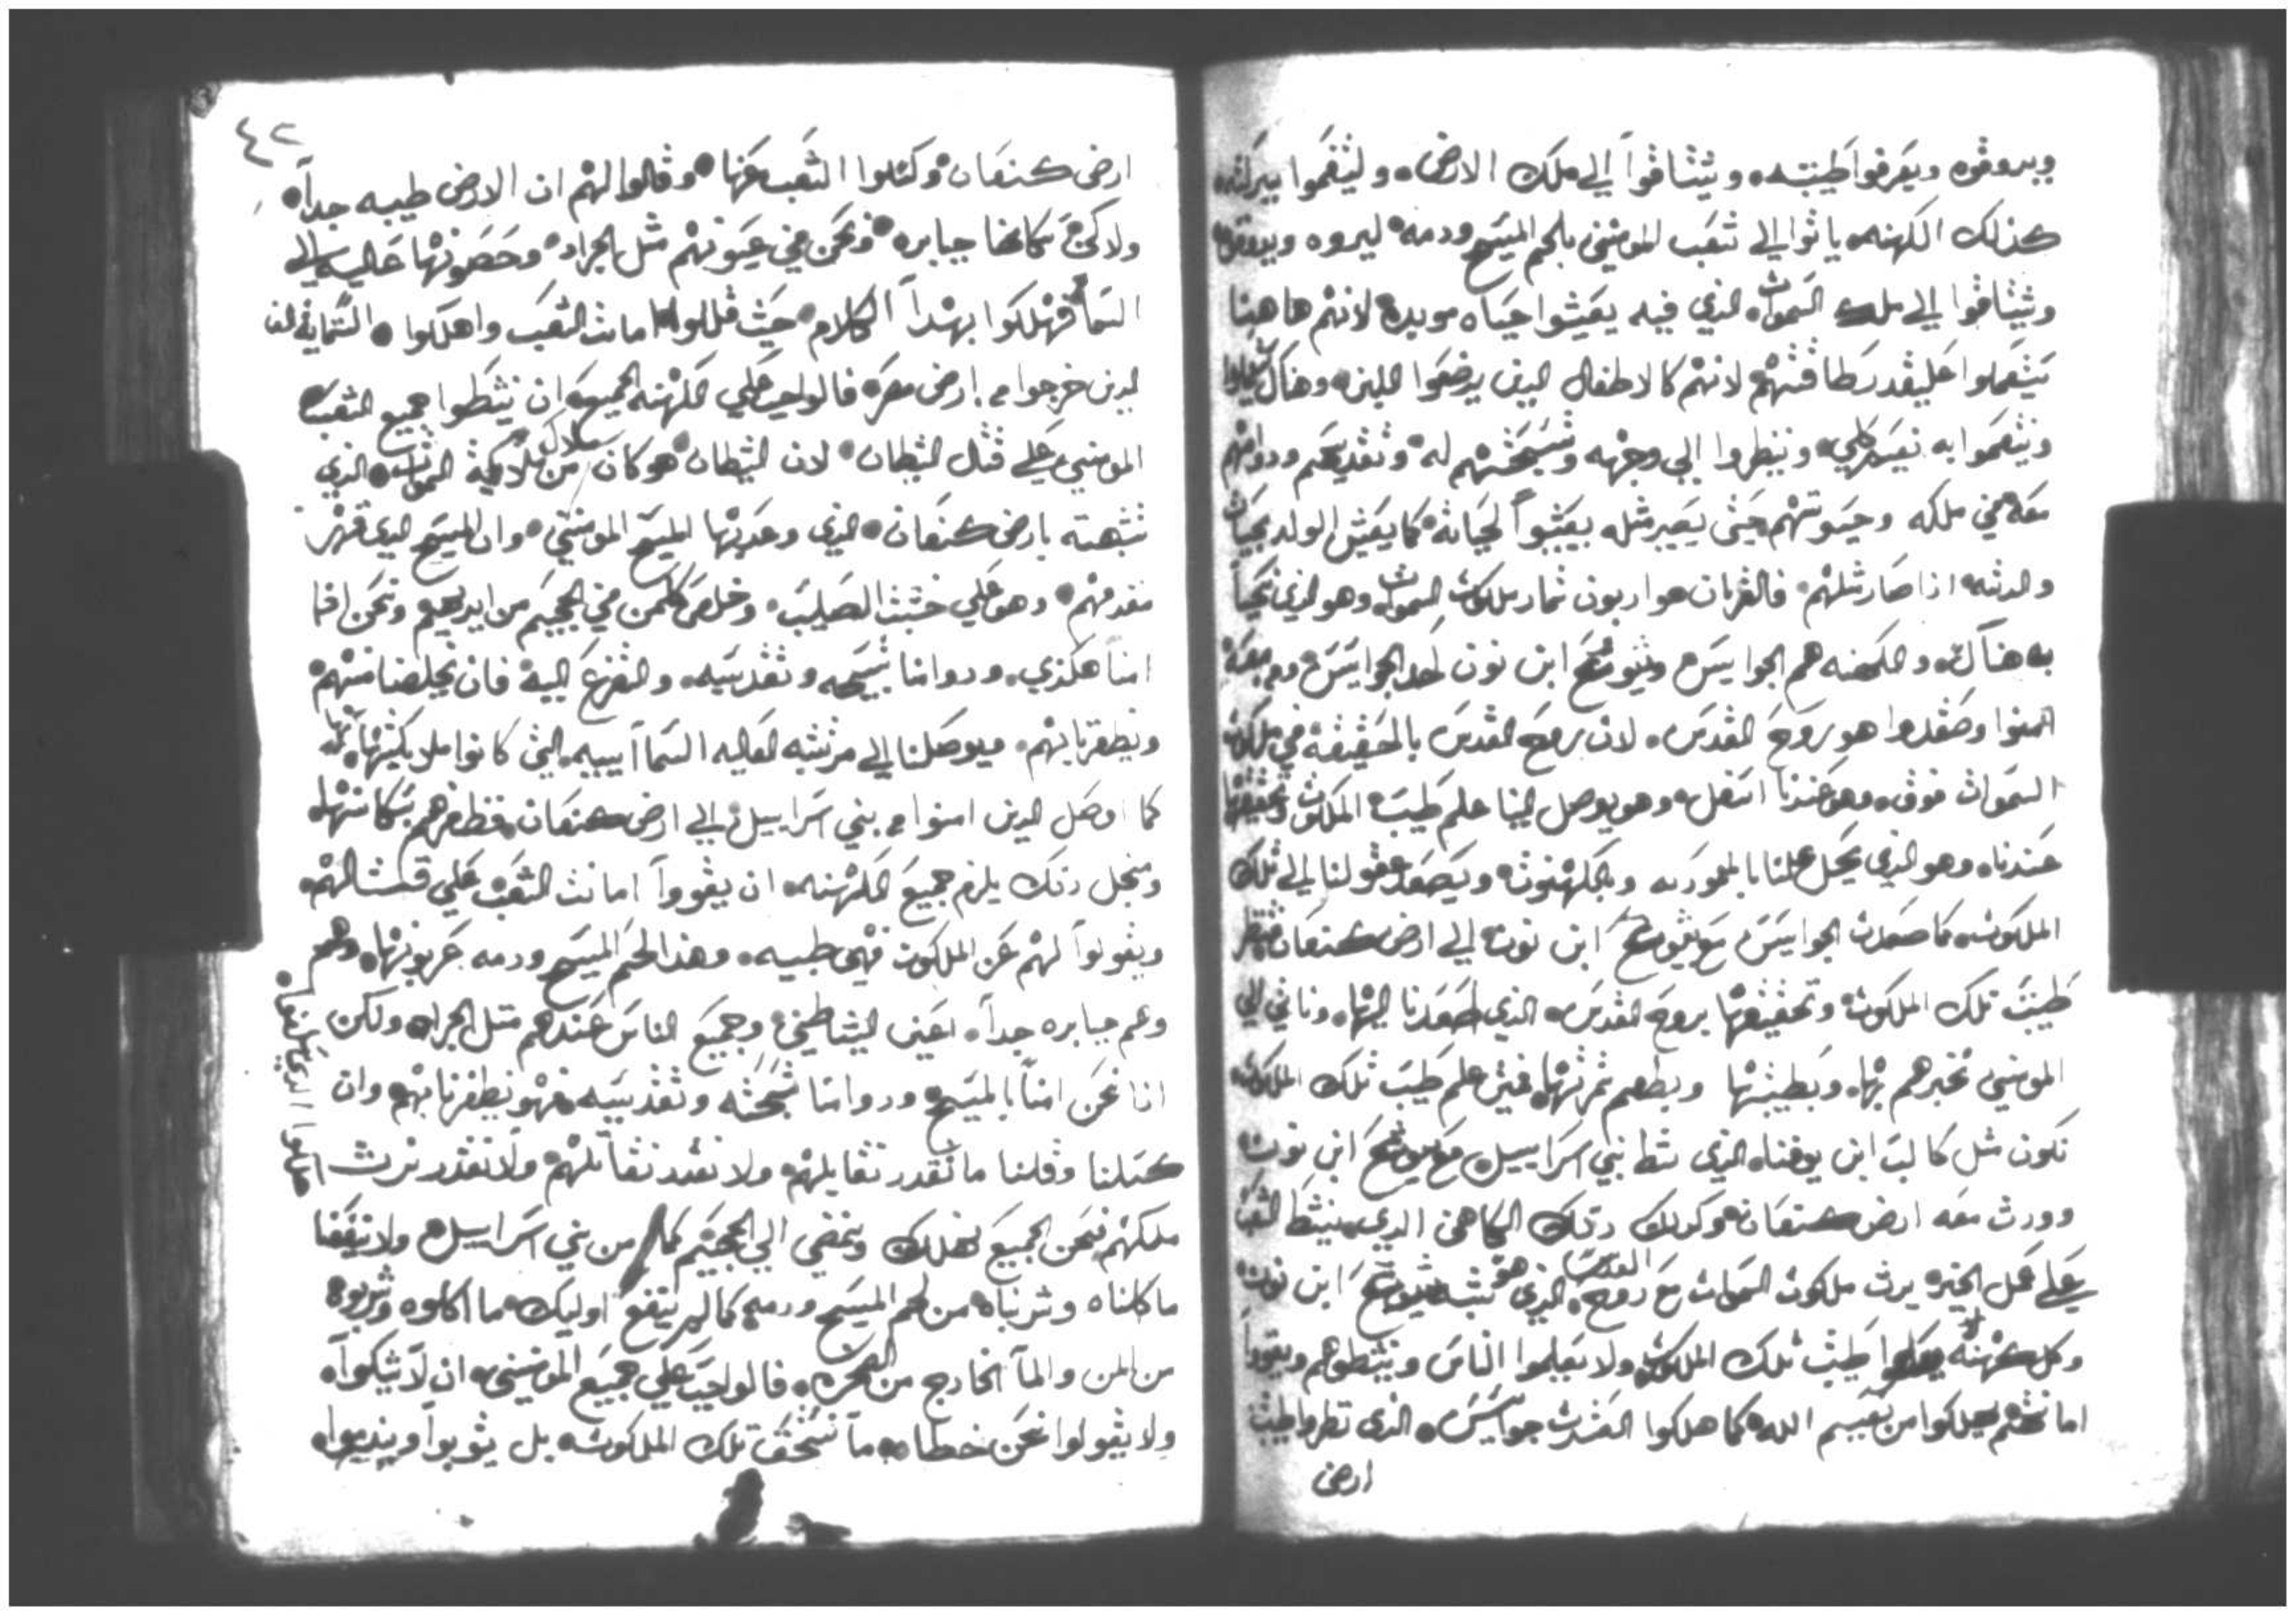 ويروقوه ويعرفوا طيبته، ويثتاقوا الي ملك الارض، وليثقموا ببركته
كذلك الكهنه ياتوا الي ثعب المومنين بلحم المسيح ودمه ليروه ويدوقوه
ويثتاقوا الي ملك السموات الذي فيه يعيثوا حياه موبده لانهم هاهنا
يثعملوا علي قدر طاقتهم لانهم كالاطفال الدين يرضعوا اللبن وهناك
ويثعموا به وينظروا الي وجهه وتسبحتهم له وتقديسهم ودوامهم
معه في ملكه وحيوتهم حيث يصير مثله يعيثوا لحياته كما يعيش الولد بحياة
والدته اذا صار مثلهم فالقربان هو اربون ثمار ملكوت السموات وهو الذي نحيا
به هناك والكهنه هم الجواسيس ويثوع ابن نون احد الجواسيس ومعه
امنوا وصعدوا هو روح القدس لان روح القدس بالحقيقه في ملكوت
السموات فوق وهو عندنا اسفل وهو يوصل الينا علم طيبة الملكوت وتحقيقها
عندنا وهو الذي يحل علينا بالمعموديه وبالكهنوت ويصعد عقولنا الي تلك
الملكوت كما صعدت الجواسيس مع يثوع ابن نون الي ارض كنعان فننظر
طيبة تلك الملكوت وتحقيقها بروح القدس الذي اصعدنا اليها وناتي الي
المومنين نخبرهم بها وبطيبتها ونطعم ثمرتها فمتى علم طيبة تلك الملكوت
نكون مثل كالب ابن يوفنا الذي نثط بني اسراييل مع يثوع ابن نون
وورث معه ارض كنعان وكدلك دلك الكاهن الدي ينثط الثعب
علي عمل الخير يرث ملكوت السموات مع روح القدس الذي هو ثبه يثوع ابن نون
وكل كهنه لا يعلموا طيبة تلك الملكوت ولا يعلموا الناس وينثطوهم ويقووا
امانتهم يهلكوا من نعيم الله كما هلكوا العثرت جواسيس الذي نظروا طيبة
ارض
٤٢
ارض كنعان وكثلوا الثعب عنها وقالوا لهم ان الارض طيبه جداً
ولاكن سكانها جبابره ونحن في عيونهم مثل الجراد وحصونها عاليه الي
السما فهلكوا بهدا الكلام حيث قللوا امانت الثعب واهلكوا الستماية الف
الدين خرجوا من ارض مصر فالواجب علي الكهنه الجميع ان ينثطوا جميع الثعب
المومنين علي قتال الثيطان لان الثيطان هو كان من ملايكة السموات الذي
ثبهته بارض كنعان الذي وعد بها المسيح المومنين وان المسيح الدي قهر
مقدمهم وهو علي خثبة الصليب وخلص كلمن في الجحيم من ايديهم ونحن اذا
امنا هكذي ودوامنا تسبيحه وتقديسه والتضرع اليه فان يخلصنا منهم
ويظفرنا بهم ويوصلنا الي مرتبته العاليه السماييه التي كانوا ملايكتها
كما اوصل الدين امنوا من بني اسراييل الي ارض كنعان وظفرهم بسكانها
ومنجل دلك يلزم جميع الكهنه ان يقووا امانت الثعب علي قتالهم
ويقولوا لهم عن الملكوت فهي طيبه وهذا لحم المسيح ودمه عربونها وهم
وهم جبابره جداً اعني الشياطين وجميع الناس عندهم متل الجراد ولكن
اذا نحن امنا بالمسيح ودوامنا تسبحته وتقديسه فهو يظفرنا بهم وان
كسلنا وقلنا ما نقدر نقابلهم ولا نقدر نقاتلهم ولا نقدر نرث
ملكهم فنحن الجميع نهلك ونمضي الي الجحيم كما من بني اسراييل ولا ينفعنا
ما كلناه وثربناه من لحم المسيح ودمه كما لم ينتفع اوليك ما اكلوه وثربوه
من المن والمآ الخارج من الصخره فالواجب علي جميع المومنين ان لا يثكوا
ولا يقولوا نحن خطاه ما نستحق تلك الملكوت بل يتوبوا ويندموا